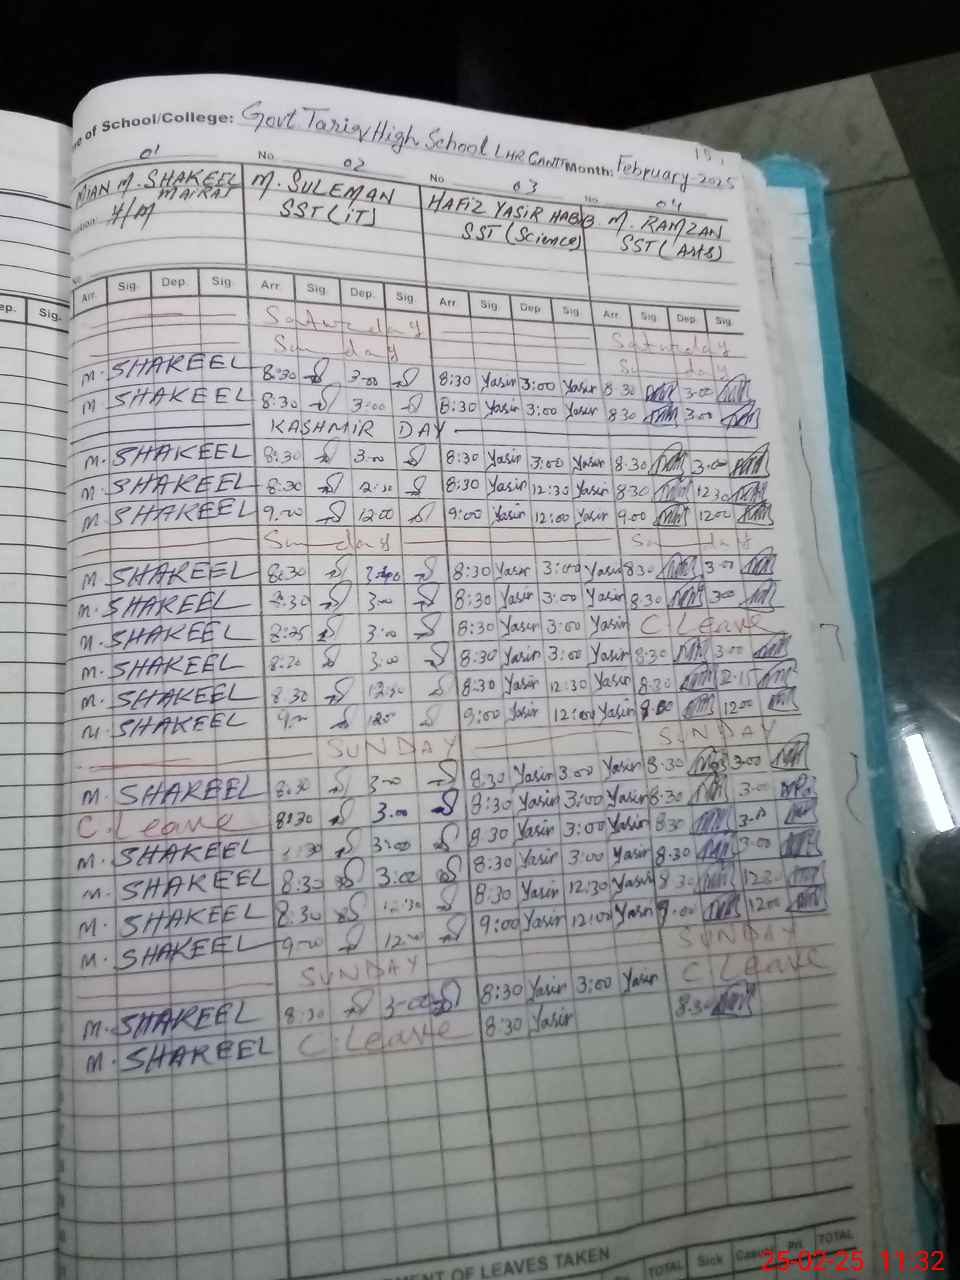 of School/College: Govt. Tariq High School LHR CANTT Month: February-2025
01 No. 02 No. 03 No. 04
MIAN M. SHAKEEL M. SULEMAN HAFIZ YASIR HABIB M. RAMZAN
H/M SST (IT) SST (Science) SST (Arts)
ep. Sig. Arr. Sig. Dep. Sig. Arr. Sig. Dep. Sig. Arr. Sig. Dep. Sig. Arr. Sig. Dep. Sig.
Saturday Saturday
Sunday Sunday
M. SHAKEEL 8:30 3:00 8:30 Yasir 3:00 Yasir 8:30 3:00
M SHAKEEL 8:30 3:00 8:30 Yasir 3:00 Yasir 8:30 3:00
KASHMIR DAY
M. SHAKEEL 8:30 3:00 8:30 Yasir 3:00 Yasir 8:30 3:00
M. SHAKEEL 8:30 12:30 8:30 Yasir 12:30 Yasir 8:30 12:30
M SHAKEEL 9:00 12:00 9:00 Yasir 12:00 Yasir 9:00 12:00
Sunday Sunday
M. SHAKEEL 8:30 8:30 Yasir 3:00 Yasir 8:30 3:00
M. SHAKEEL 8:30 3:00 8:30 Yasir 3:00 Yasir 8:30 3:00
M. SHAKEEL 8:25 3:00 8:30 Yasir 3:00 Yasir C Leave
M SHAKEEL 8:30 3:00 8:30 Yasir 3:00 Yasir 8:30 3:00
M. SHAKEEL 8:30 12:30 8:30 Yasir 12:30 Yasir 8:30
M. SHAKEEL 9:00 1200 9:00 Yasir 12:00 Yasir 1200
SUNDAY SUNDAY
M. SHAKEEL 8:30 3:00 8:30 Yasir 3:00 Yasir 8:30 3:00
C. Leave 8:30 3:00 8:30 Yasir 3:00 Yasir 8:30 3:00
M. SHAKEEL 3:00 8:30 Yasir 3:00 Yasir 8:30 3:00
M. SHAKEEL 8:30 3:00 8:30 Yasir 3:00 Yasir 8:30 3:00
M. SHAKEEL 8:30 12:30 8:30 Yasir 12:30 Yasir 8:30 12:30
M. SHAKEEL 9:00 12:00 9:00 Yasir 12:00 Yasir 9:00 1200
SUNDAY SUNDAY
M. SHAKEEL 8:30 3:00 8:30 Yasir 3:00 Yasir C Leave
M. SHAKEEL C. Leave 8:30 Yasir 8:30
MENT OF LEAVES TAKEN TOTAL Sick Pri. TOTAL
25-02-25 11:32